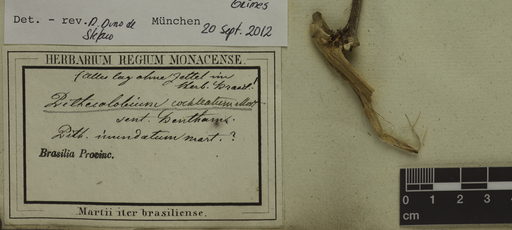 Grimes
Det. - rev. D. Dino de München
Stefano 20 Sept. 2012
HERBARIUM REGIUM MONACENSE.
(alles lag ohne Zettel im
Herb. Mart.!
Pithecolobium cochleatum Mart.
sent. Benthami.
Pith. inundatum Mart. ?
Brasilia Provinc.
Martii iter brasiliense.
0 1 2 3 4
cm